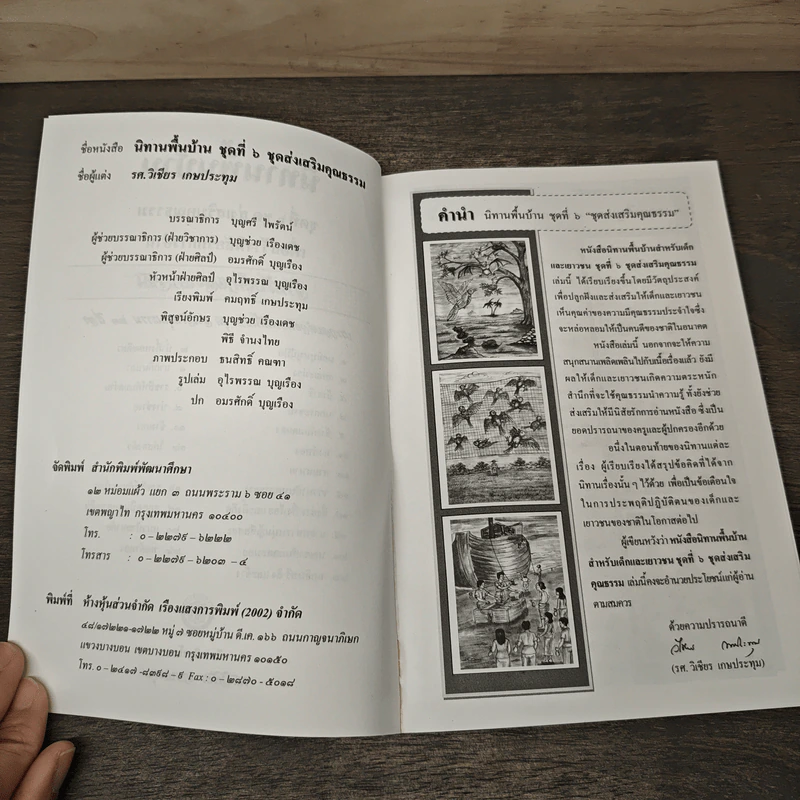 ชื่อหนังสือ นิทานพื้นบ้าน ชุดที่ ๖ ชุดส่งเสริมคุณธรรม
ชื่อผู้แต่ง รศ.วิเชียร เกษประทุม
บรรณาธิการ บุญศรี ไพรัตน์
ผู้ช่วยบรรณาธิการ (ฝ่ายวิชาการ) บุญช่วย เรืองเดช
ผู้ช่วยบรรณาธิการ (ฝ่ายศิลป์) อมรศักดิ์ บุญเรือง
หัวหน้าฝ่ายศิลป์ อุไรพรรณ บุญเรือง
เรียงพิมพ์ คมฤทธิ์ เกษประทุม
พิสูจน์อักษร บุญช่วย เรืองเดช
พิธี จำนงไทย
ภาพประกอบ ธนสิทธิ์ คณฑา
รูปเล่ม อุไรพรรณ บุญเรือง
ปก อมรศักดิ์ บุญเรือง
จัดพิมพ์ สำนักพิมพ์พัฒนาศึกษา
๑๒ หม่อมแผ้ว แยก ๓ ถนนพระราม ๖ ซอย ๔๑
เขตพญาไท กรุงเทพมหานคร ๑๐๔๐๐
โทร. : ๐-๒๒๗๙-๖๒๒๒
โทรสาร : ๐-๒๒๗๙-๖๒๐๓-๔
พิมพ์ที่ ห้างหุ้นส่วนจำกัด เรืองแสงการพิมพ์ (2002) จำกัด
๔๘/๑๗๒๒๑-๑๗๒๒ หมู่ ๗ ซอยหมู่บ้าน ดี.เค. ๑๖๖ ถนนกาญจนาภิเษก
แขวงบางบอน เขตบางบอน กรุงเทพมหานคร ๑๐๑๕๐
โทร. ๐-๒๔๑๗-๘๓๙๘-๙ Fax : ๐-๒๘๗๐-๕๐๑๘
คำนำ นิทานพื้นบ้าน ชุดที่ ๖ "ชุดส่งเสริมคุณธรรม"
หนังสือนิทานพื้นบ้านสำหรับเด็ก
และเยาวชน ชุดที่ ๖ ชุดส่งเสริมคุณธรรม
เล่มนี้ ได้เรียบเรียงขึ้นโดยมีวัตถุประสงค์
เพื่อปลูกฝังและส่งเสริมให้เด็กและเยาวชน
เห็นคุณค่าของความมีคุณธรรมประจำใจซึ่ง
จะหล่อหลอมให้เป็นคนดีของชาติในอนาคต
หนังสือเล่มนี้ นอกจากจะให้ความ
สนุกสนานเพลิดเพลินไปกับเนื้อเรื่องแล้ว ยังมี
ผลให้เด็กและเยาวชนเกิดความตระหนัก
สำนึกที่จะใช้คุณธรรมนำความรู้ ทั้งยังช่วย
ส่งเสริมให้มีนิสัยรักการอ่านหนังสือ ซึ่งเป็น
ยอดปรารถนาของครูและผู้ปกครองอีกด้วย
อนึ่งในตอนท้ายของนิทานแต่ละ
เรื่อง ผู้เรียบเรียงได้สรุปข้อคิดที่ได้จาก
นิทานเรื่องนั้น ๆ ไว้ด้วย เพื่อเป็นข้อเตือนใจ
ในการประพฤติปฏิบัติตนของเด็กและ
เยาวชนของชาติในโอกาสต่อไป
ผู้เขียนหวังว่า หนังสือนิทานพื้นบ้าน
สำหรับเด็กและเยาวชน ชุดที่ ๖ ชุดส่งเสริม
คุณธรรม เล่มนี้คงจะอำนวยประโยชน์แก่ผู้อ่าน
ตามสมควร
ด้วยความปรารถนาดี
(รศ. วิเชียร เกษประทุม)